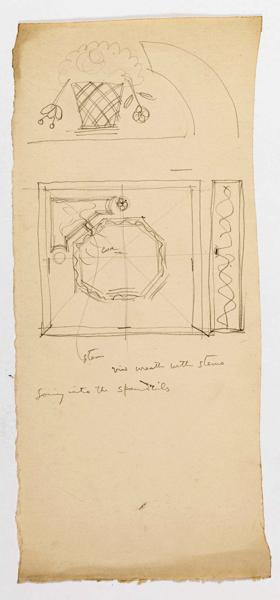 stem
vine wreath with stems
Going into the spandrils